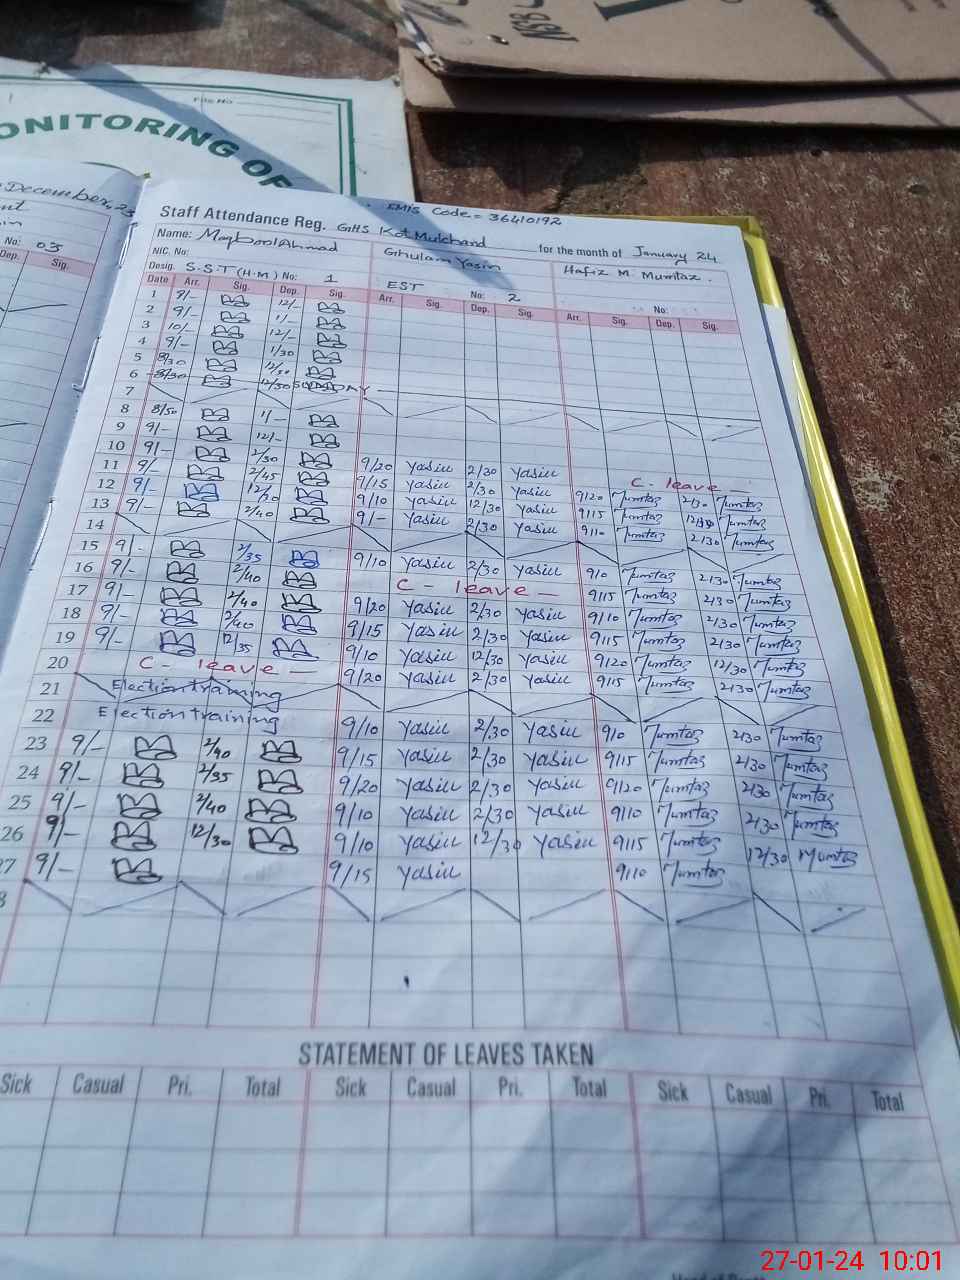 NSB
File No
ONITORING OF
December, 23
No: 03
Dep. Sig.
EMIS Code = 36410192
Staff Attendance Reg. GHS Kot Mulchand for the month of January 24
Name: Maqbool Ahmad Ghulam Yasin Hafiz M. Mumtaz.
NIC. No:
Desig. S.S.T (H.M) No: 1 EST No: 2 No:
Date Arr. Sig. Dep. Sig. Arr. Sig. Dep. Sig. Arr. Sig. Dep. Sig.
1 9/- 12/-
2 9/- 1/-
3 10/- 12/-
4 9/- 1/30
5 8/30 12/30
6 8/30 12/30
7 SUNDAY
8 8/50 1/-
9 9/- 12/-
10 9/- 2/30
11 9/- 2/45 9/20 Yasin 2/30 Yasin C - leave -
12 9/- 12/30 9/15 Yasin 2/30 Yasin 9/20 Mumtaz 2/30 Mumtaz
13 9/- 2/40 9/10 Yasin 12/30 Yasin 9/15 Mumtaz 12/30 Mumtaz
14 9/- Yasin 2/30 Yasin 9/10 Mumtaz 2/30 Mumtaz
15 9/- 2/35 9/10 Yasin 2/30 Yasin 9/0 Mumtaz 2/30 Mumtaz
16 9/- 2/40 C - leave - 9/15 Mumtaz 2/30 Mumtaz
17 9/- 2/40 9/20 Yasin 2/30 Yasin 9/10 Mumtaz 2/30 Mumtaz
18 9/- 2/40 9/15 Yasin 2/30 Yasin 9/15 Mumtaz 2/30 Mumtaz
19 9/- 12/35 9/10 Yasin 12/30 Yasin 9/20 Mumtaz 12/30 Mumtaz
20 C - leave - 9/20 Yasin 2/30 Yasin 9/15 Mumtaz 2/30 Mumtaz
21 Election training
22 Election training 9/10 Yasin 2/30 Yasin 9/0 Mumtaz 2/30 Mumtaz
23 9/- 2/40 9/15 Yasin 2/30 Yasin 9/15 Mumtaz 2/30 Mumtaz
24 9/- 2/35 9/20 Yasin 2/30 Yasin 9/20 Mumtaz 2/30 Mumtaz
25 9/- 2/40 9/10 Yasin 2/30 Yasin 9/10 Mumtaz 2/30 Mumtaz
26 9/- 12/30 9/10 Yasin 12/30 Yasin 9/15 Mumtaz 12/30 Mumtaz
27 9/- 9/15 Yasin 9/10 Mumtaz
8
STATEMENT OF LEAVES TAKEN
Sick Casual Pri. Total Sick Casual Pri. Total Sick Casual Pri. Total
27-01-24 10:01